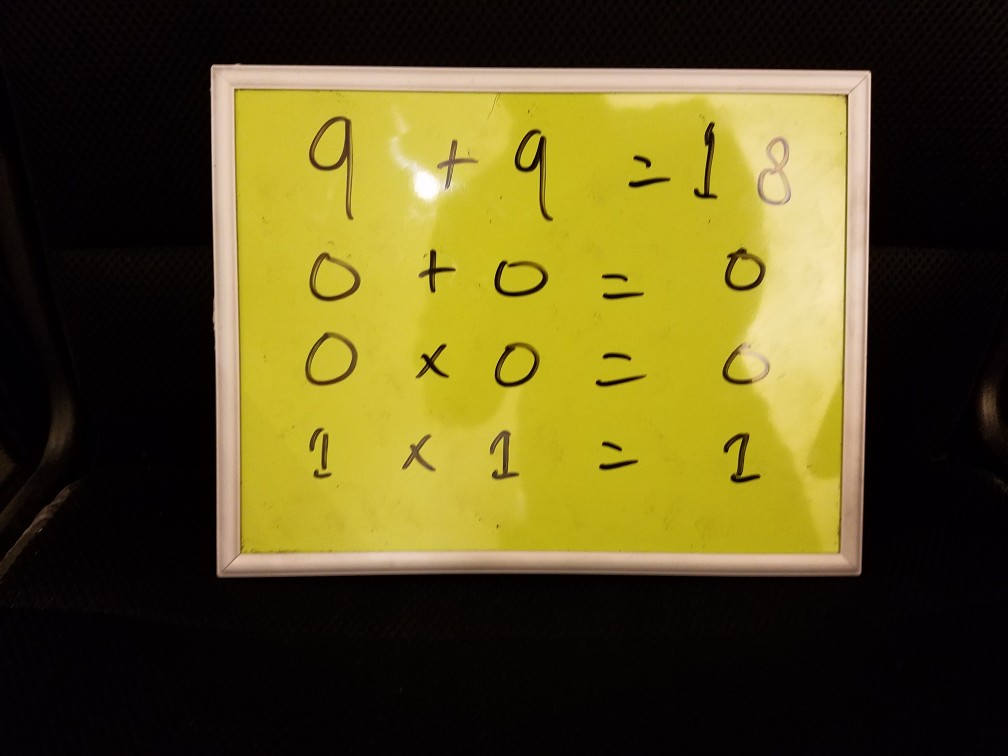 9 + 9 = 18
0 + 0 = 0
0 × 0 = 0
1 × 1 = 1